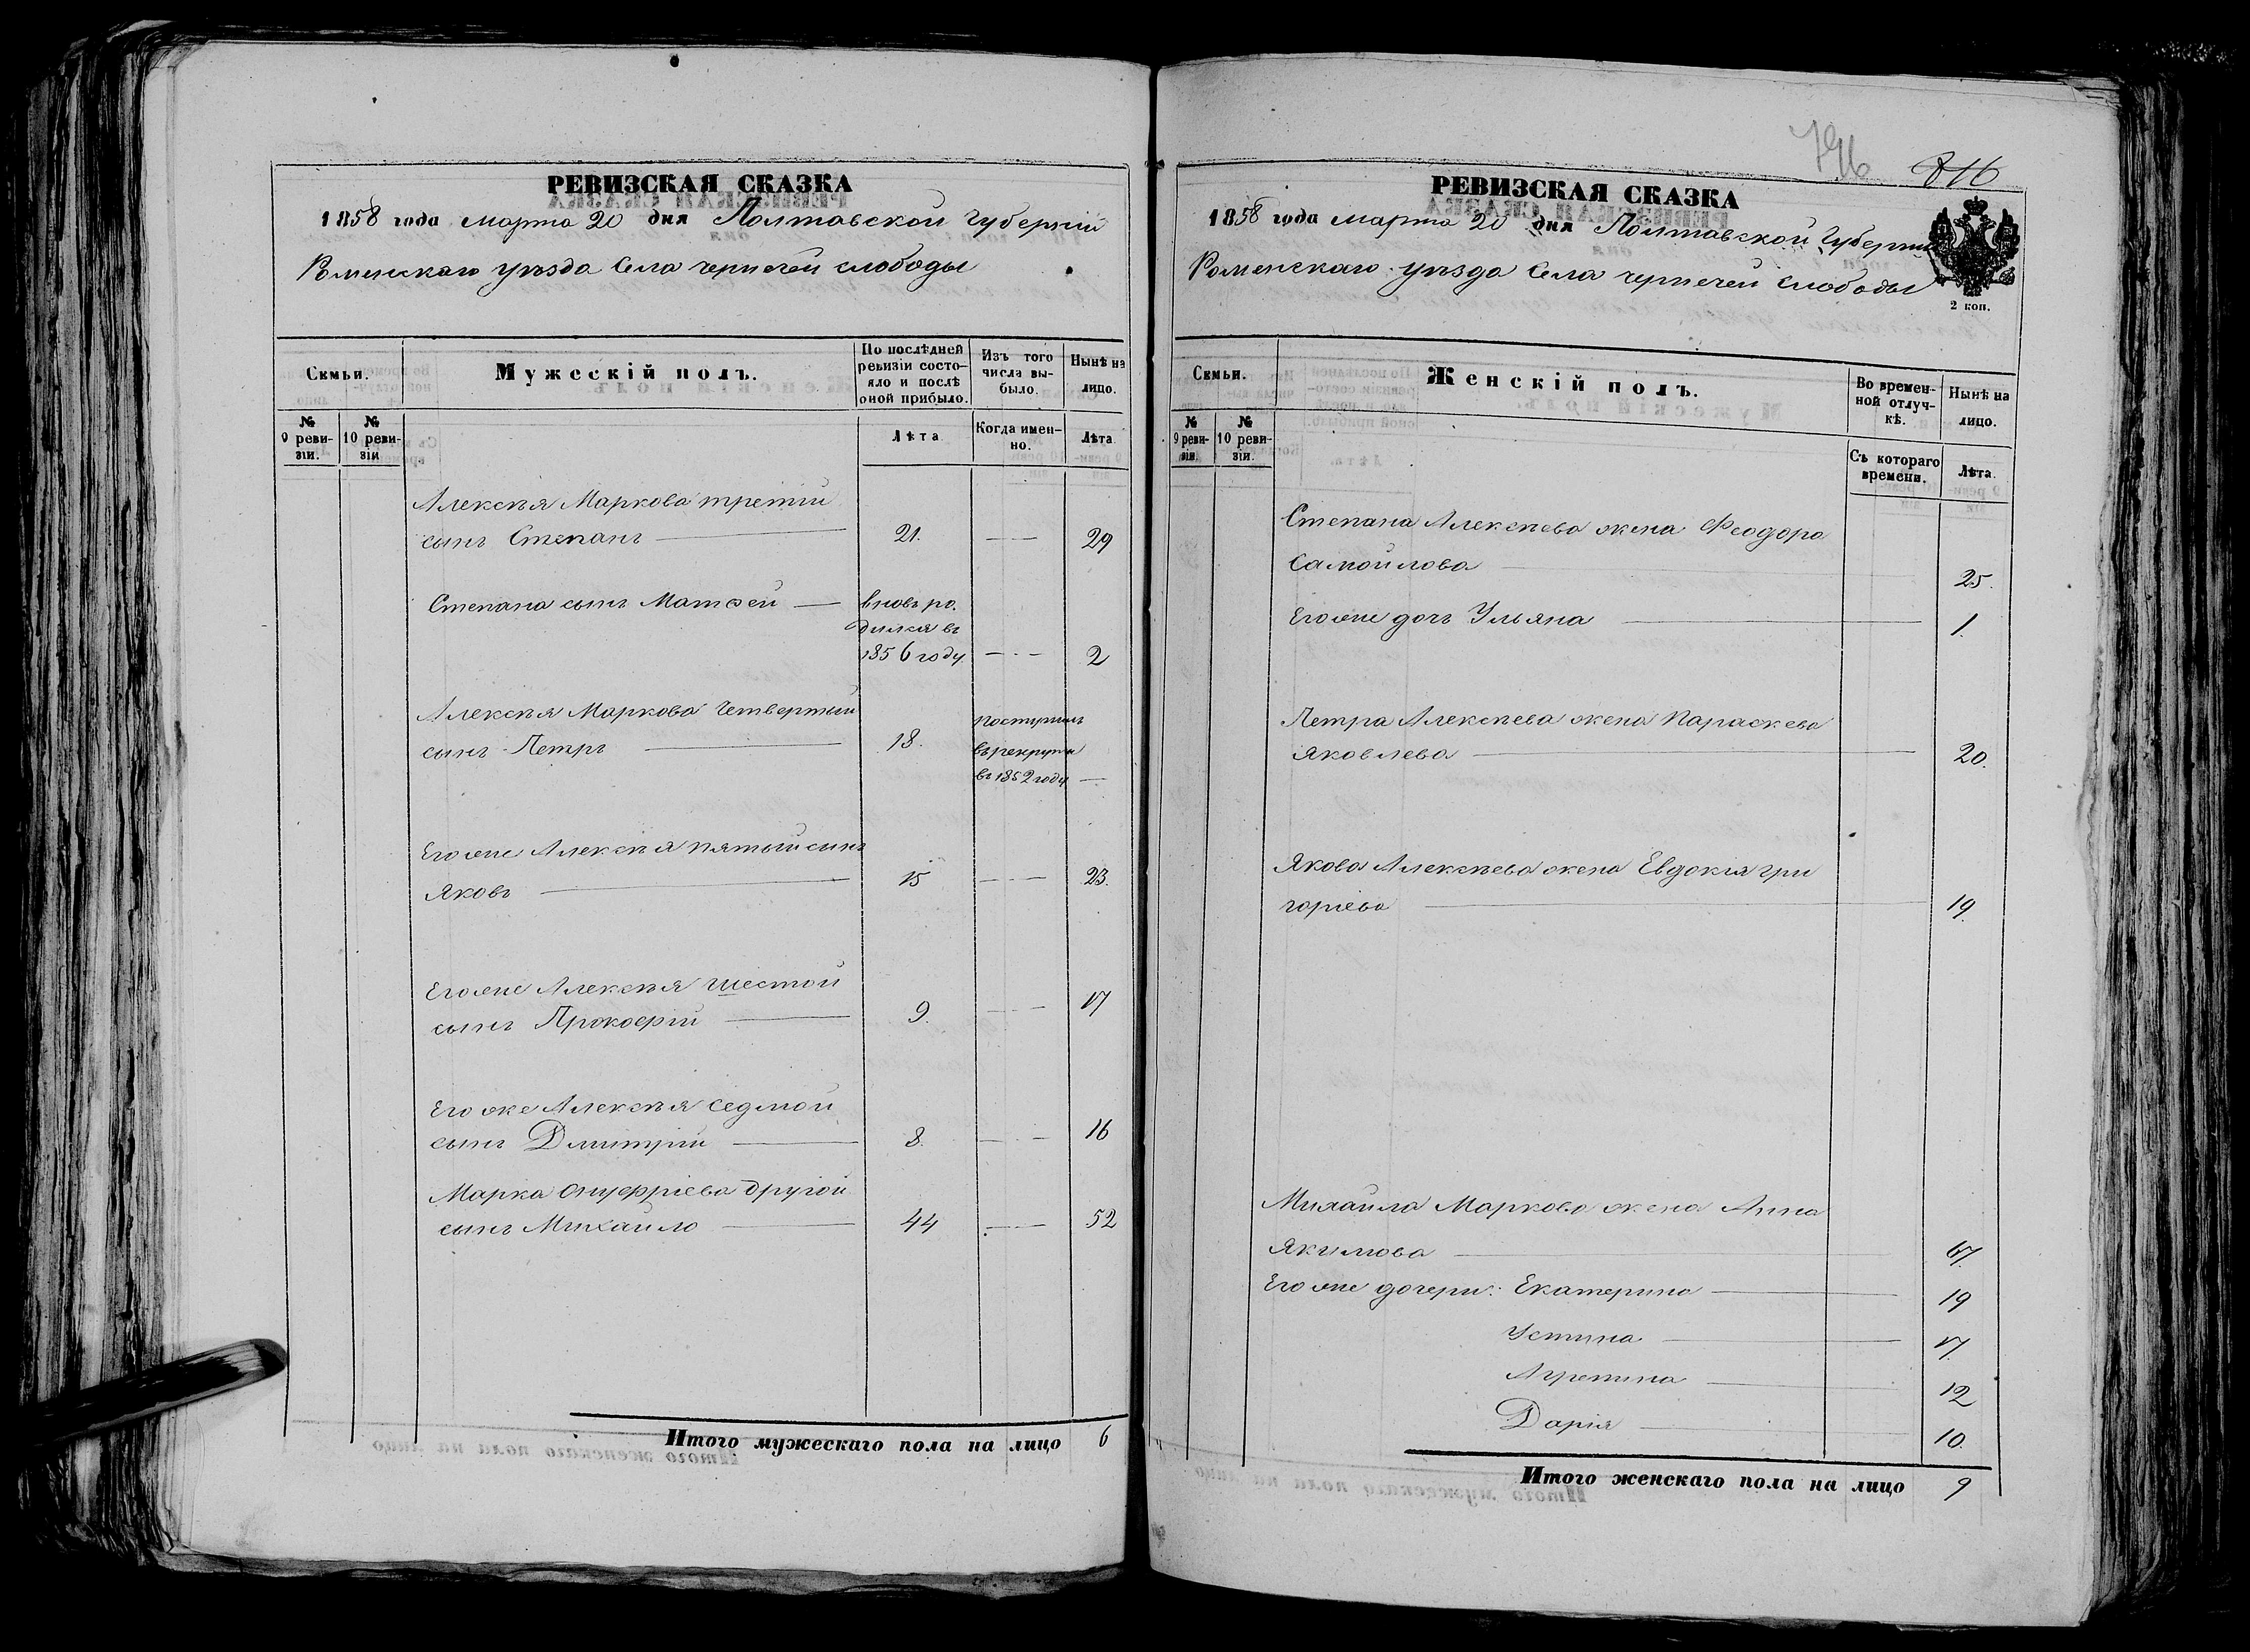 РЕВИЗСКАЯ СКАЗКА
1858 года марта 20 дня Полтавской Губерніи
Роменскаго уѣзда Села чернечей слободы
Семьи.
Мужескій полъ.
По послѣдней ревизіи состояло и послѣ оной прибыло.
Изъ того числа выбыло.
Нынѣ на лицо.
№ 9 ревизіи.
№ 10 ревизіи
Лѣта
Когда именно.
Лѣта
Алексѣя Маркова третій
сынъ Степанъ — 21. — 29
Степана сынъ Матѳей — вновь ро.
дился въ
1856 году — 2
Алексѣя Маркова Четвертый
сынъ Петръ — 18. поступилъ
въ рекруты
въ 1852 году —
Его же Алексѣя пятый сынъ
Яковъ — 15 — 23.
Его же Алексѣя шестой
сынъ Прокофій — 9. — 17
Его же Алексѣя седмой
сынъ Дмитрій — 8. — 16
Марка Онуфріева другой
сынъ Михайло — 44 — 52
Итого мужескаго пола на лицо 6
796
816
РЕВИЗСКАЯ СКАЗКА
1858 года марта 20 дня Полтавской Губерніи
Роменскаго уѣзда Села чернечей слободы
2 коп.
Семьи.
Женскій полъ.
Во временной отлучкѣ.
Нынѣ на лицо.
№ 9 ревизіи.
№ 10 ревизіи.
Съ котораго времени.
Лѣта.
Степана Алексѣева жена Феодора
Самойлова — 25.
Его же дочь Ульяна — 1.
Петра Алексѣева жена Параскева
Яковлева — 20.
Якова Алексѣева жена Евдокія гри
горіева — 19.
Михайла Маркова жена Анна
Якимова — 47.
Его же дочери: Екатерина — 19
Устина — 17.
Агрепина — 12
Дарія — 10.
Итого женскаго пола на лицо 9